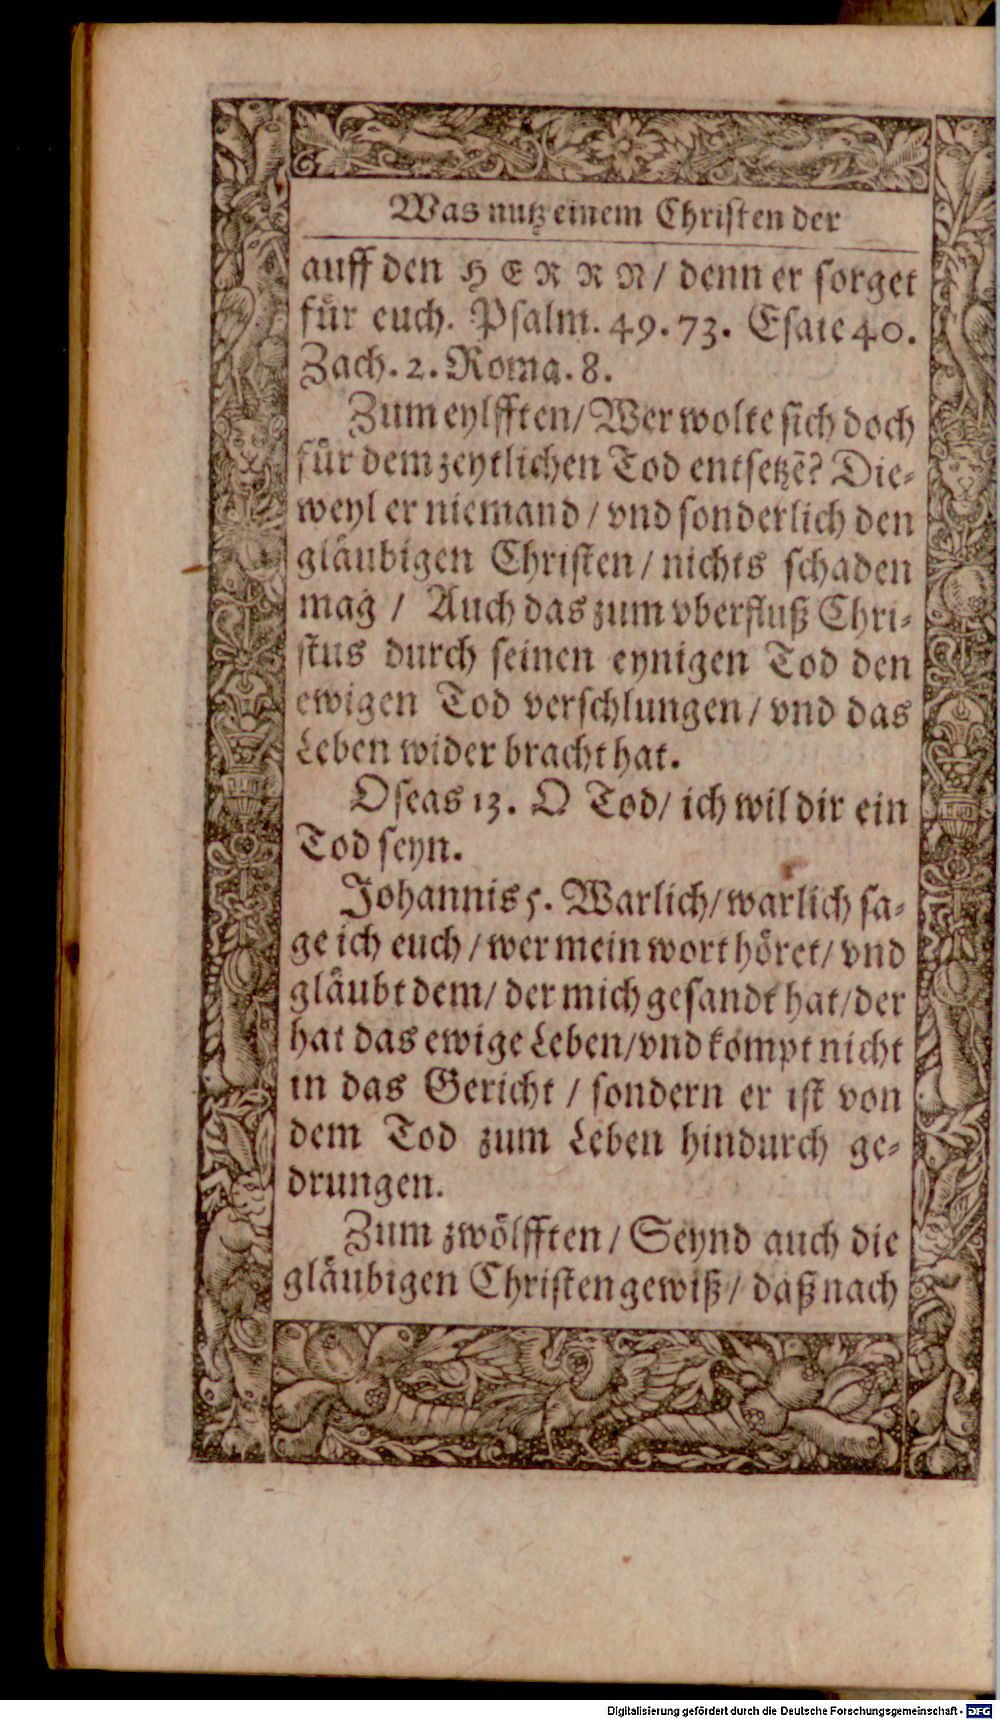 Was nutz einem Christen der
auff den HERRN/ denn er sorget
fuͤr euch. Psalm. 49. 73. Esaie 40.
Zach. 2. Roma. 8.
Zum eylfften/ Wer wolte sich doch
fuͤr dem zeytlichen Tod entsetzē? Die-
weyl er niemand / vnd sonderlich den
glaͤubigen Christen / nichts schaden
mag / Auch das zum vberfluß Chri-
stus durch seinen eynigen Tod den
ewigen Tod verschlungen / vnd das
Leben wider bracht hat.
Oseas 13. O Tod/ ich wil dir ein
Tod seyn.
Johannis 5. Warlich/ warlich sa-
ge ich euch / wer mein wort hoͤret/ vnd
glaͤubt dem/ der mich gesandt hat/ der
hat das ewige Leben/ vnd kompt nicht
in das Gericht / sondern er ist von
dem Tod zum Leben hindurch ge-
drungen.
Zum zwoͤlfften / Seynd auch die
glaͤubigen Christen gewiß / daß nach
Digitalisierung gefördert durch die Deutsche Forschungsgemeinschaft - DFG